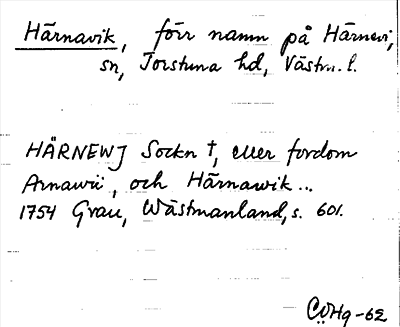 Härnavik, förr namn på Härnevi,
sn, Torstuna hd, Västm. l.
HÄRNEWJ Sockn †, eller fordom
Arnawi, och Härnawik...
1754 Grau, Wästmanland, s. 601.
CÖHg-62